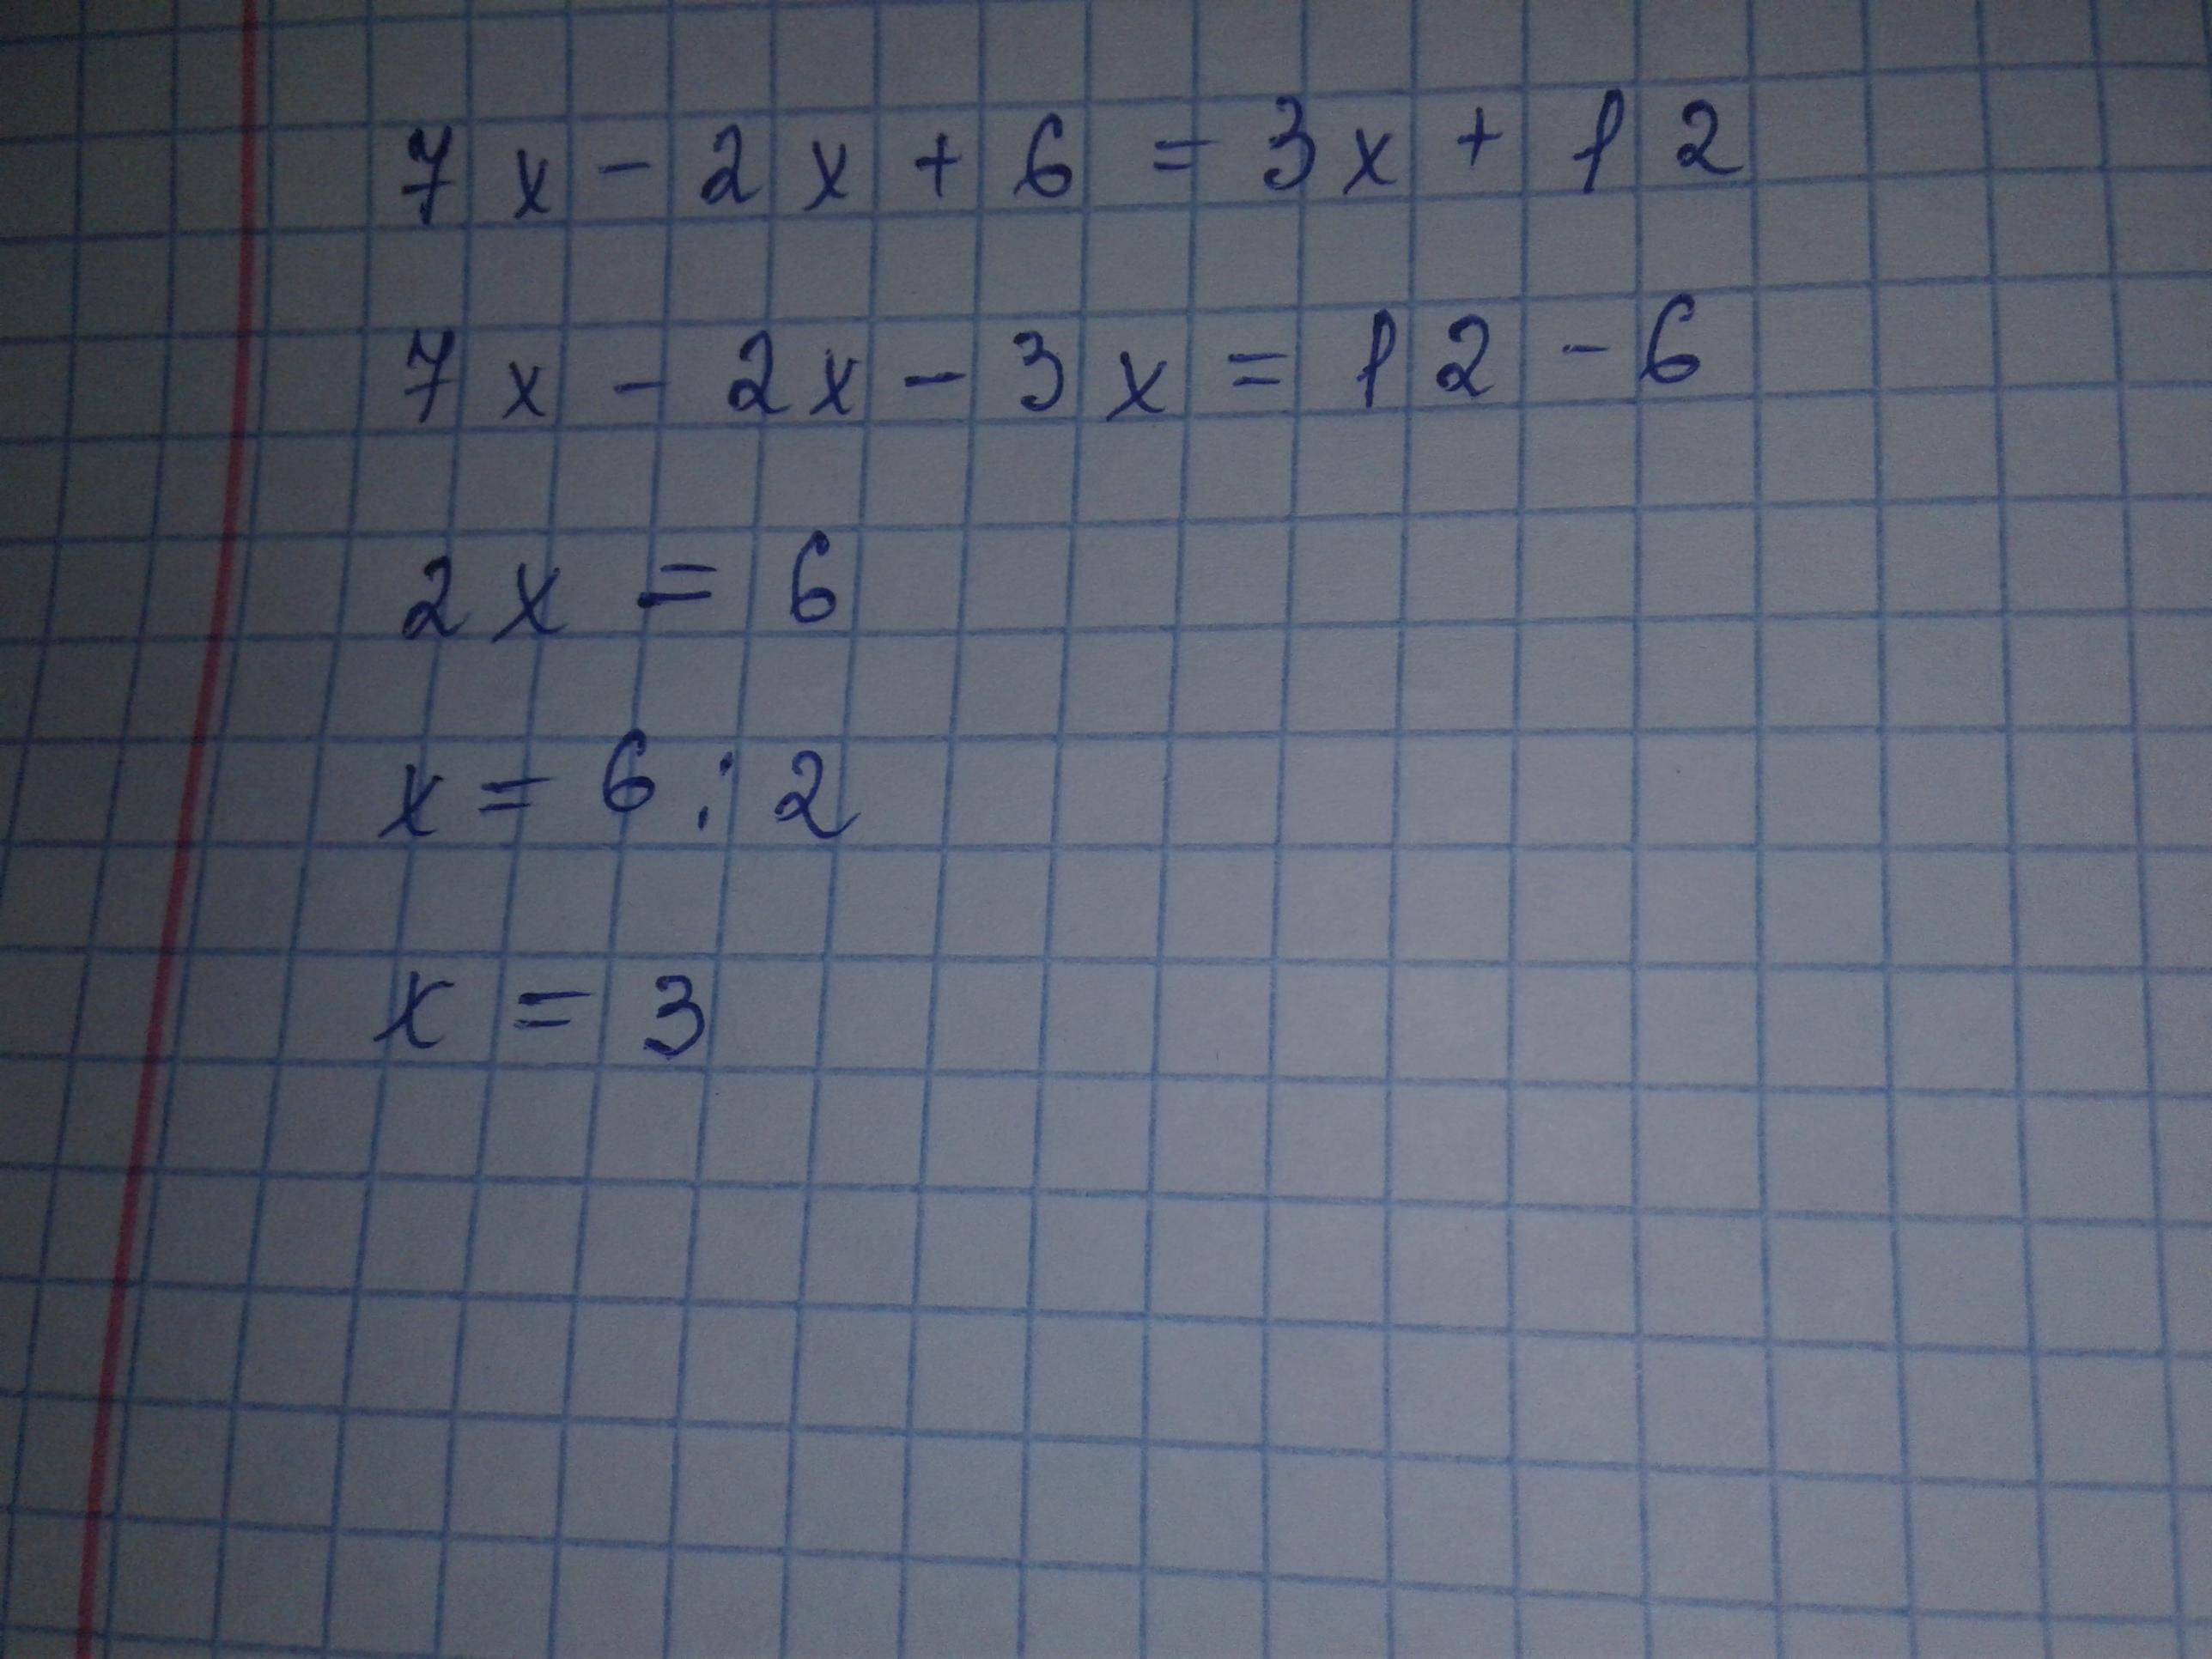 7x - 2x + 6 = 3x + 12
7x - 2x - 3x = 12 - 6
2x = 6
x = 6 : 2
x = 3